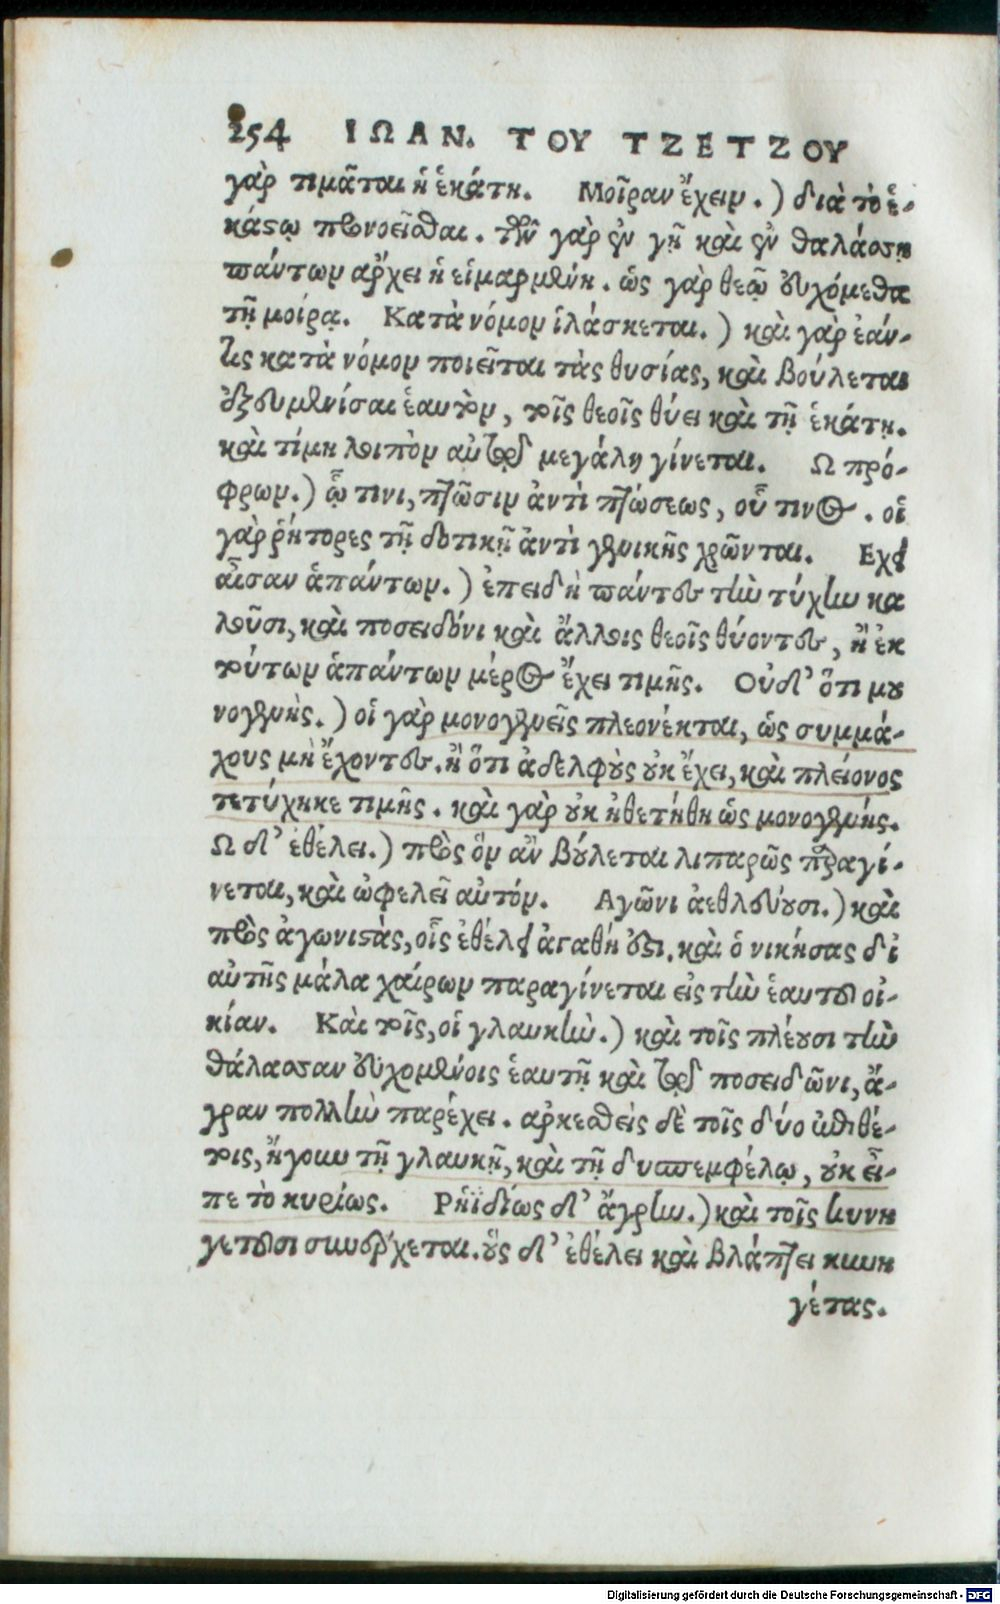 254 ΙΩΑΝ. ΤΟΥ ΤΖΕΤΖΟΥ
γὰρ τιμᾶται ἡ ἑκάτη. Μοῖραν ἔχειν.) διὰ τὸ ἑ-
κάστῳ προνοεῖσθαι. τῶν γὰρ ἐν γῇ καὶ ἐν θαλάσσῃ
πάντων ἄρχει ἡ εἱμαρμένη. ὡς γὰρ θεῷ εὐχόμεθα
τῇ μοίρᾳ. Κατὰ νόμον ἱλάσκεται.) καὶ γὰρ ἐάν-
τις κατὰ νόμον ποιεῖται τὰς θυσίας, καὶ βούλεται
ἐξευμενίσαι ἑαυτὸν, τοῖς θεοῖς θύει καὶ τῇ ἑκάτῃ.
καὶ τίμη λοιπὸν αὐτῷ μεγάλη γίνεται. Ω πρό-
φρων.) ᾧ τινι, πτῶσιν ἀντὶ πτώσεως, οὗ τινος. οἱ
γὰρ ῥήτορες τῇ δοτικῇ ἀντὶ γενικῆς χρῶνται. Εχει
αἶσαν ἁπάντων.) ἐπειδὴ πάντες τὴν τύχην κα
λοῦσι, καὶ ποσειδῶνι καὶ ἄλλοις θεοῖς θύοντες, ἢ ἐκ
τούτων ἁπάντων μέρος ἔχει τιμῆς. Οὐδ' ὅτι μου
νογενὴς.) οἱ γὰρ μονογενεῖς πλεονέκται, ὡς συμμά-
χους μὴ ἔχοντες. ἢ ὅτι ἀδελφοὺς οὐκ ἔχει, καὶ πλείονος
τετύχηκε τιμῆς. καὶ γὰρ οὐκ ἠθετήθη ὡς μονογενής.
Ω δ' ἐθέλει.) πρὸς ὃν ἂν βούλεται λιπαρῶς παραγί-
νεται, καὶ ὠφελεῖ αὐτόν. Αγῶνι ἀεθλεύουσι.) καὶ
πρὸς ἀγωνιστὰς, οἷς ἐθέλει ἀγαθή ἐστι. καὶ ὁ νικήσας δἰ
αὐτῆς μάλα χαίρων παραγίνεται εἰς τὴν ἑαυτοῦ οἰ-
κίαν. Καὶ τοῖς, οἳ γλαυκὴν.) καὶ τοῖς πλέουσι τὴν
θάλασσαν εὐχομένοις ἑαυτῇ καὶ τῷ ποσειδῶνι, ἄ-
γραν πολλὴν παρέχει. ἀρκεσθεὶς δὲ τοῖς δύο ἐπιθέ-
τοις, ἤγουν τῇ γλαυκῇ, καὶ τῇ δυσπεμφέλῳ, οὐκ εἶ-
πε τὸ κυρίως. Ρηϊδίως δ' ἄγρην.) καὶ τοῖς κυνη
γετοῦσι συνέρχεται. οὓς δ' ἐθέλει καὶ βλάπτει κυνη
γέτας.
Digitalisierung gefördert durch die Deutsche Forschungsgemeinschaft - DFG